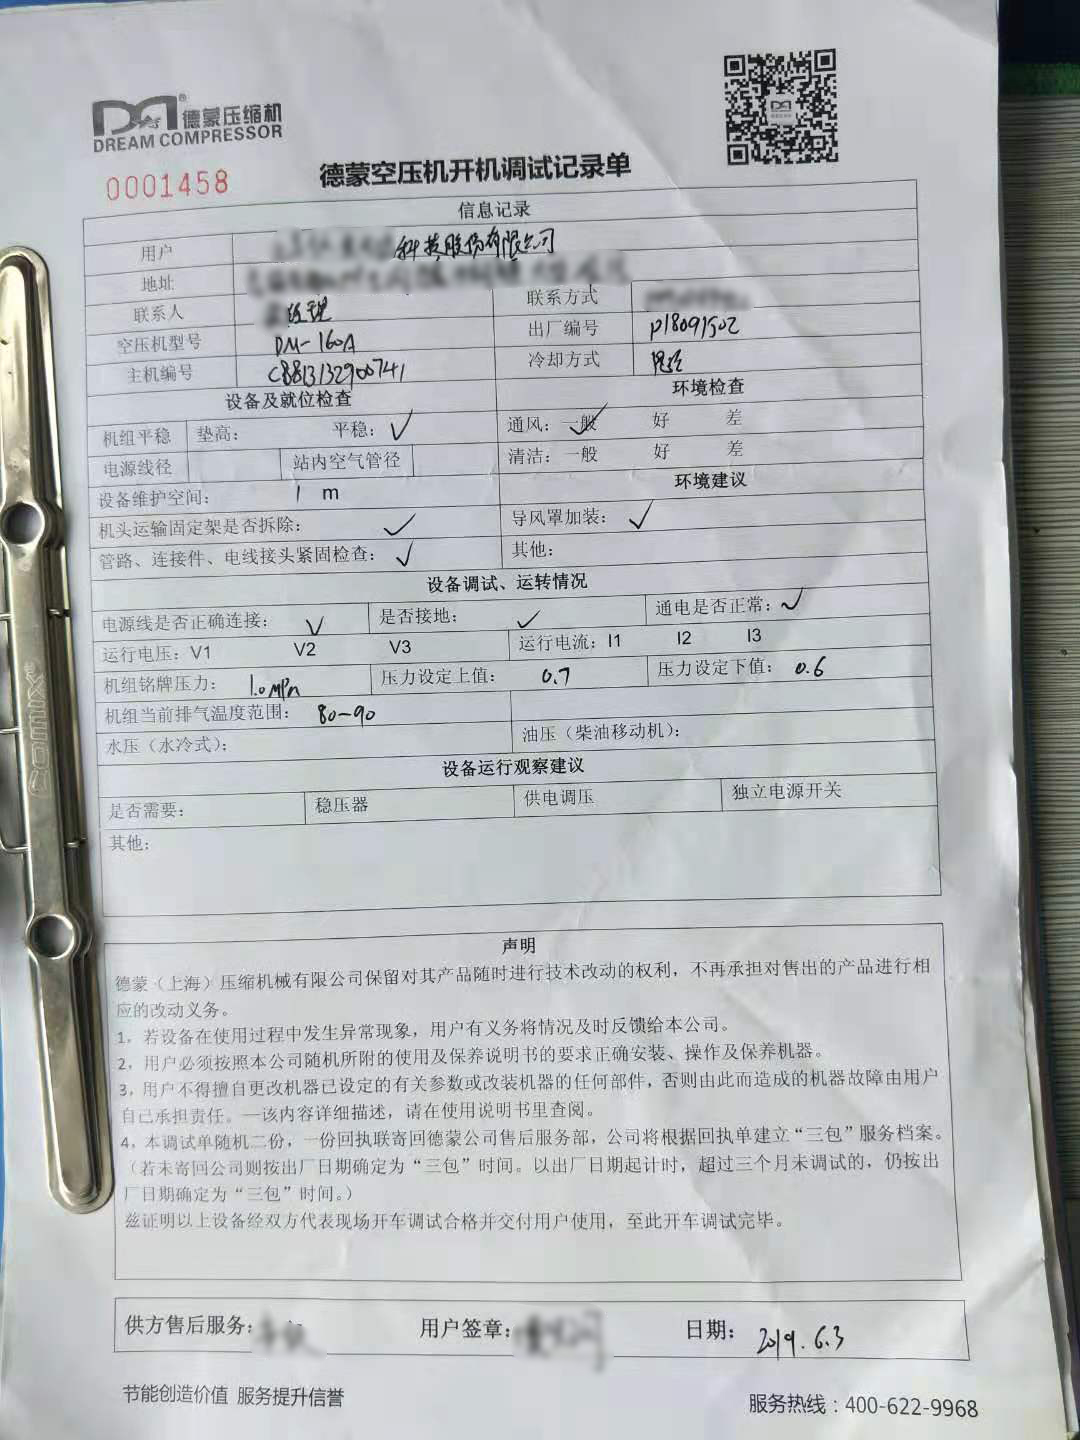 德蒙压缩机
DREAM COMPRESSOR
0001458
德蒙空压机开机调试记录单
信息记录
用户 科技股份有限公司
地址
联系人 经理 联系方式
空压机型号 DM-160A 出厂编号 P18091502
主机编号 CB813132900741 冷却方式
设备及就位检查 环境检查
机组平稳 垫高： 平稳：✓ 通风：一般✓ 好 差
电源线径 站内空气管径 清洁：一般 好 差
设备维护空间： 1 m 环境建议
机头运输固定架是否拆除：✓ 导风罩加装：✓
管路、连接件、电线接头紧固检查：✓ 其他：
设备调试、运转情况
电源线是否正确连接：✓ 是否接地：✓ 通电是否正常：✓
运行电压：V1 V2 V3 运行电流：I1 I2 I3
机组铭牌压力： 1.0MPa 压力设定上值： 0.7 压力设定下值： 0.6
机组当前排气温度范围： 80-90
水压（水冷式）： 油压（柴油移动机）：
设备运行观察建议
是否需要： 稳压器 供电调压 独立电源开关
其他：
声明
德蒙（上海）压缩机械有限公司保留对其产品随时进行技术改动的权利，不再承担对售出的产品进行相
应的改动义务。
1，若设备在使用过程中发生异常现象，用户有义务将情况及时反馈给本公司。
2，用户必须按照本公司随机所附的使用及保养说明书的要求正确安装、操作及保养机器。
3，用户不得擅自更改机器已设定的有关参数或改装机器的任何部件，否则由此而造成的机器故障由用户
自己承担责任。—该内容详细描述，请在使用说明书里查阅。
4，本调试单随机二份，一份回执联寄回德蒙公司售后服务部，公司将根据回执单建立“三包”服务档案。
（若未寄回公司则按出厂日期确定为“三包”时间。以出厂日期起计时，超过三个月未调试的，仍按出
厂日期确定为“三包”时间。）
兹证明以上设备经双方代表现场开车调试合格并交付用户使用，至此开车调试完毕。
供方售后服务： 用户签章： 日期： 2019.6.3
节能创造价值 服务提升信誉
服务热线：400-622-9968
comix